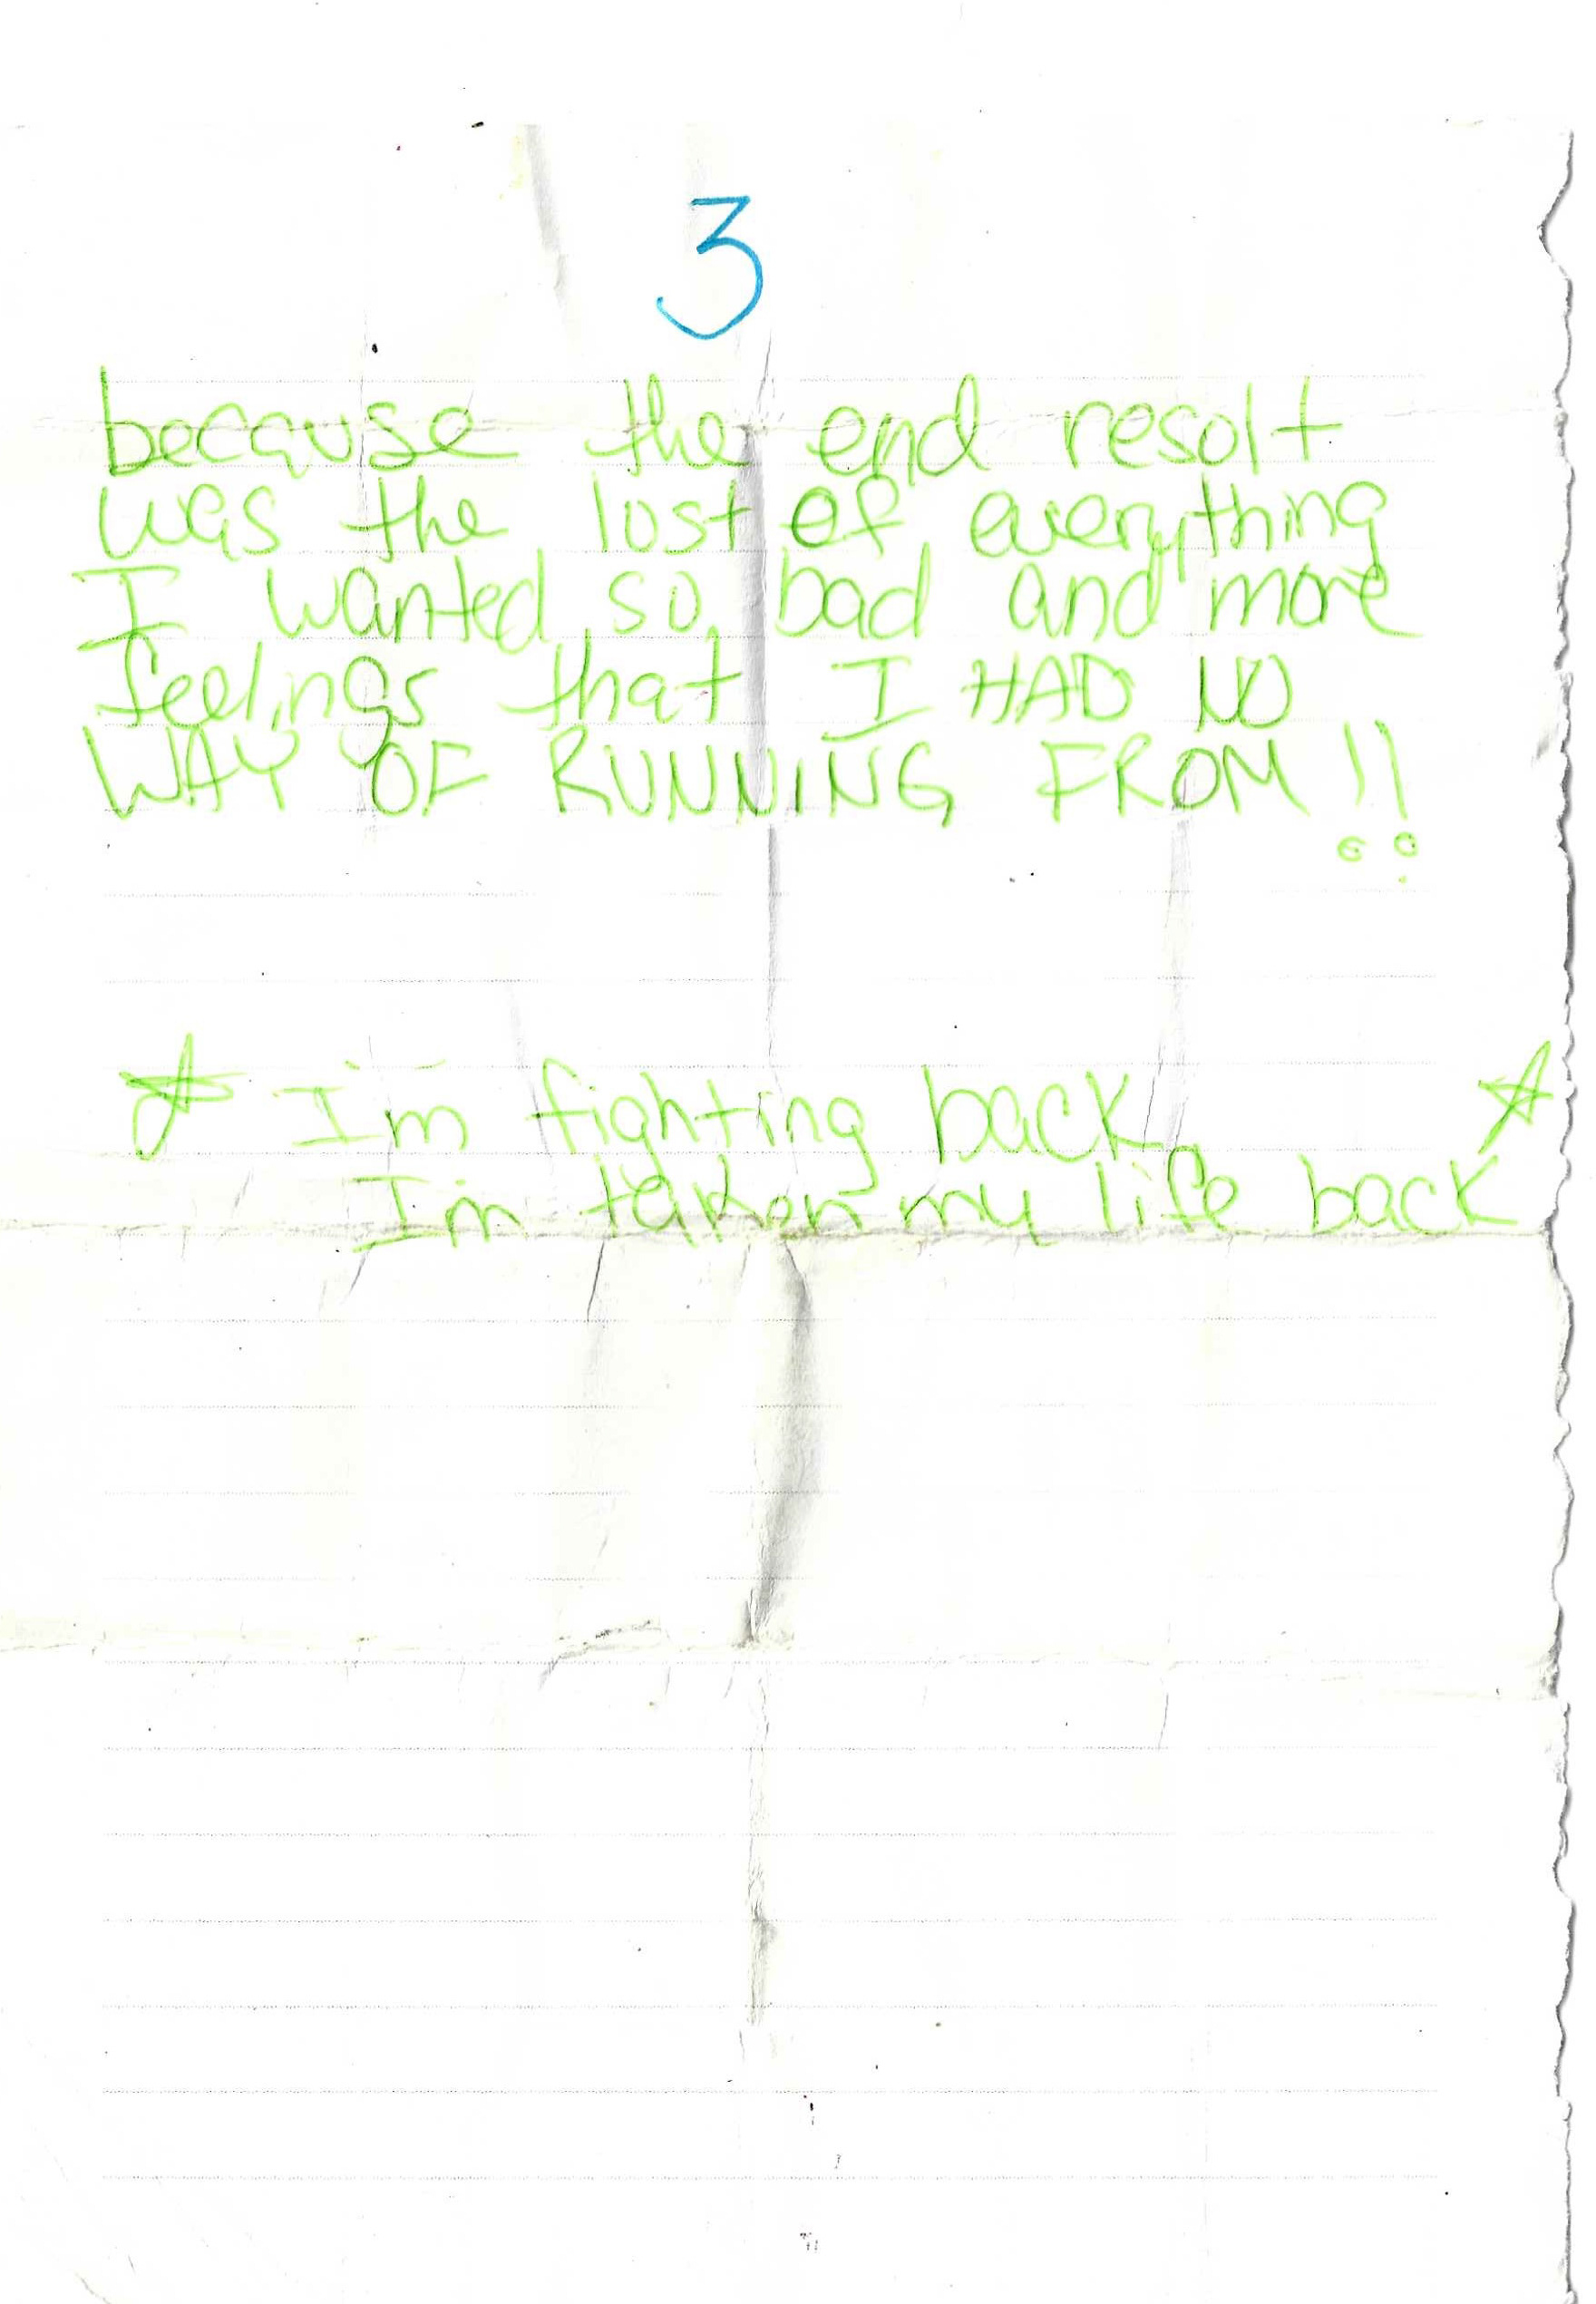 3
because the end resolt
was the lost of everything
I wanted so bad and more
feelings that I HAD NO
WAY OF RUNNING FROM !!
☆ I'm fighting back ☆
I'm taken my life back